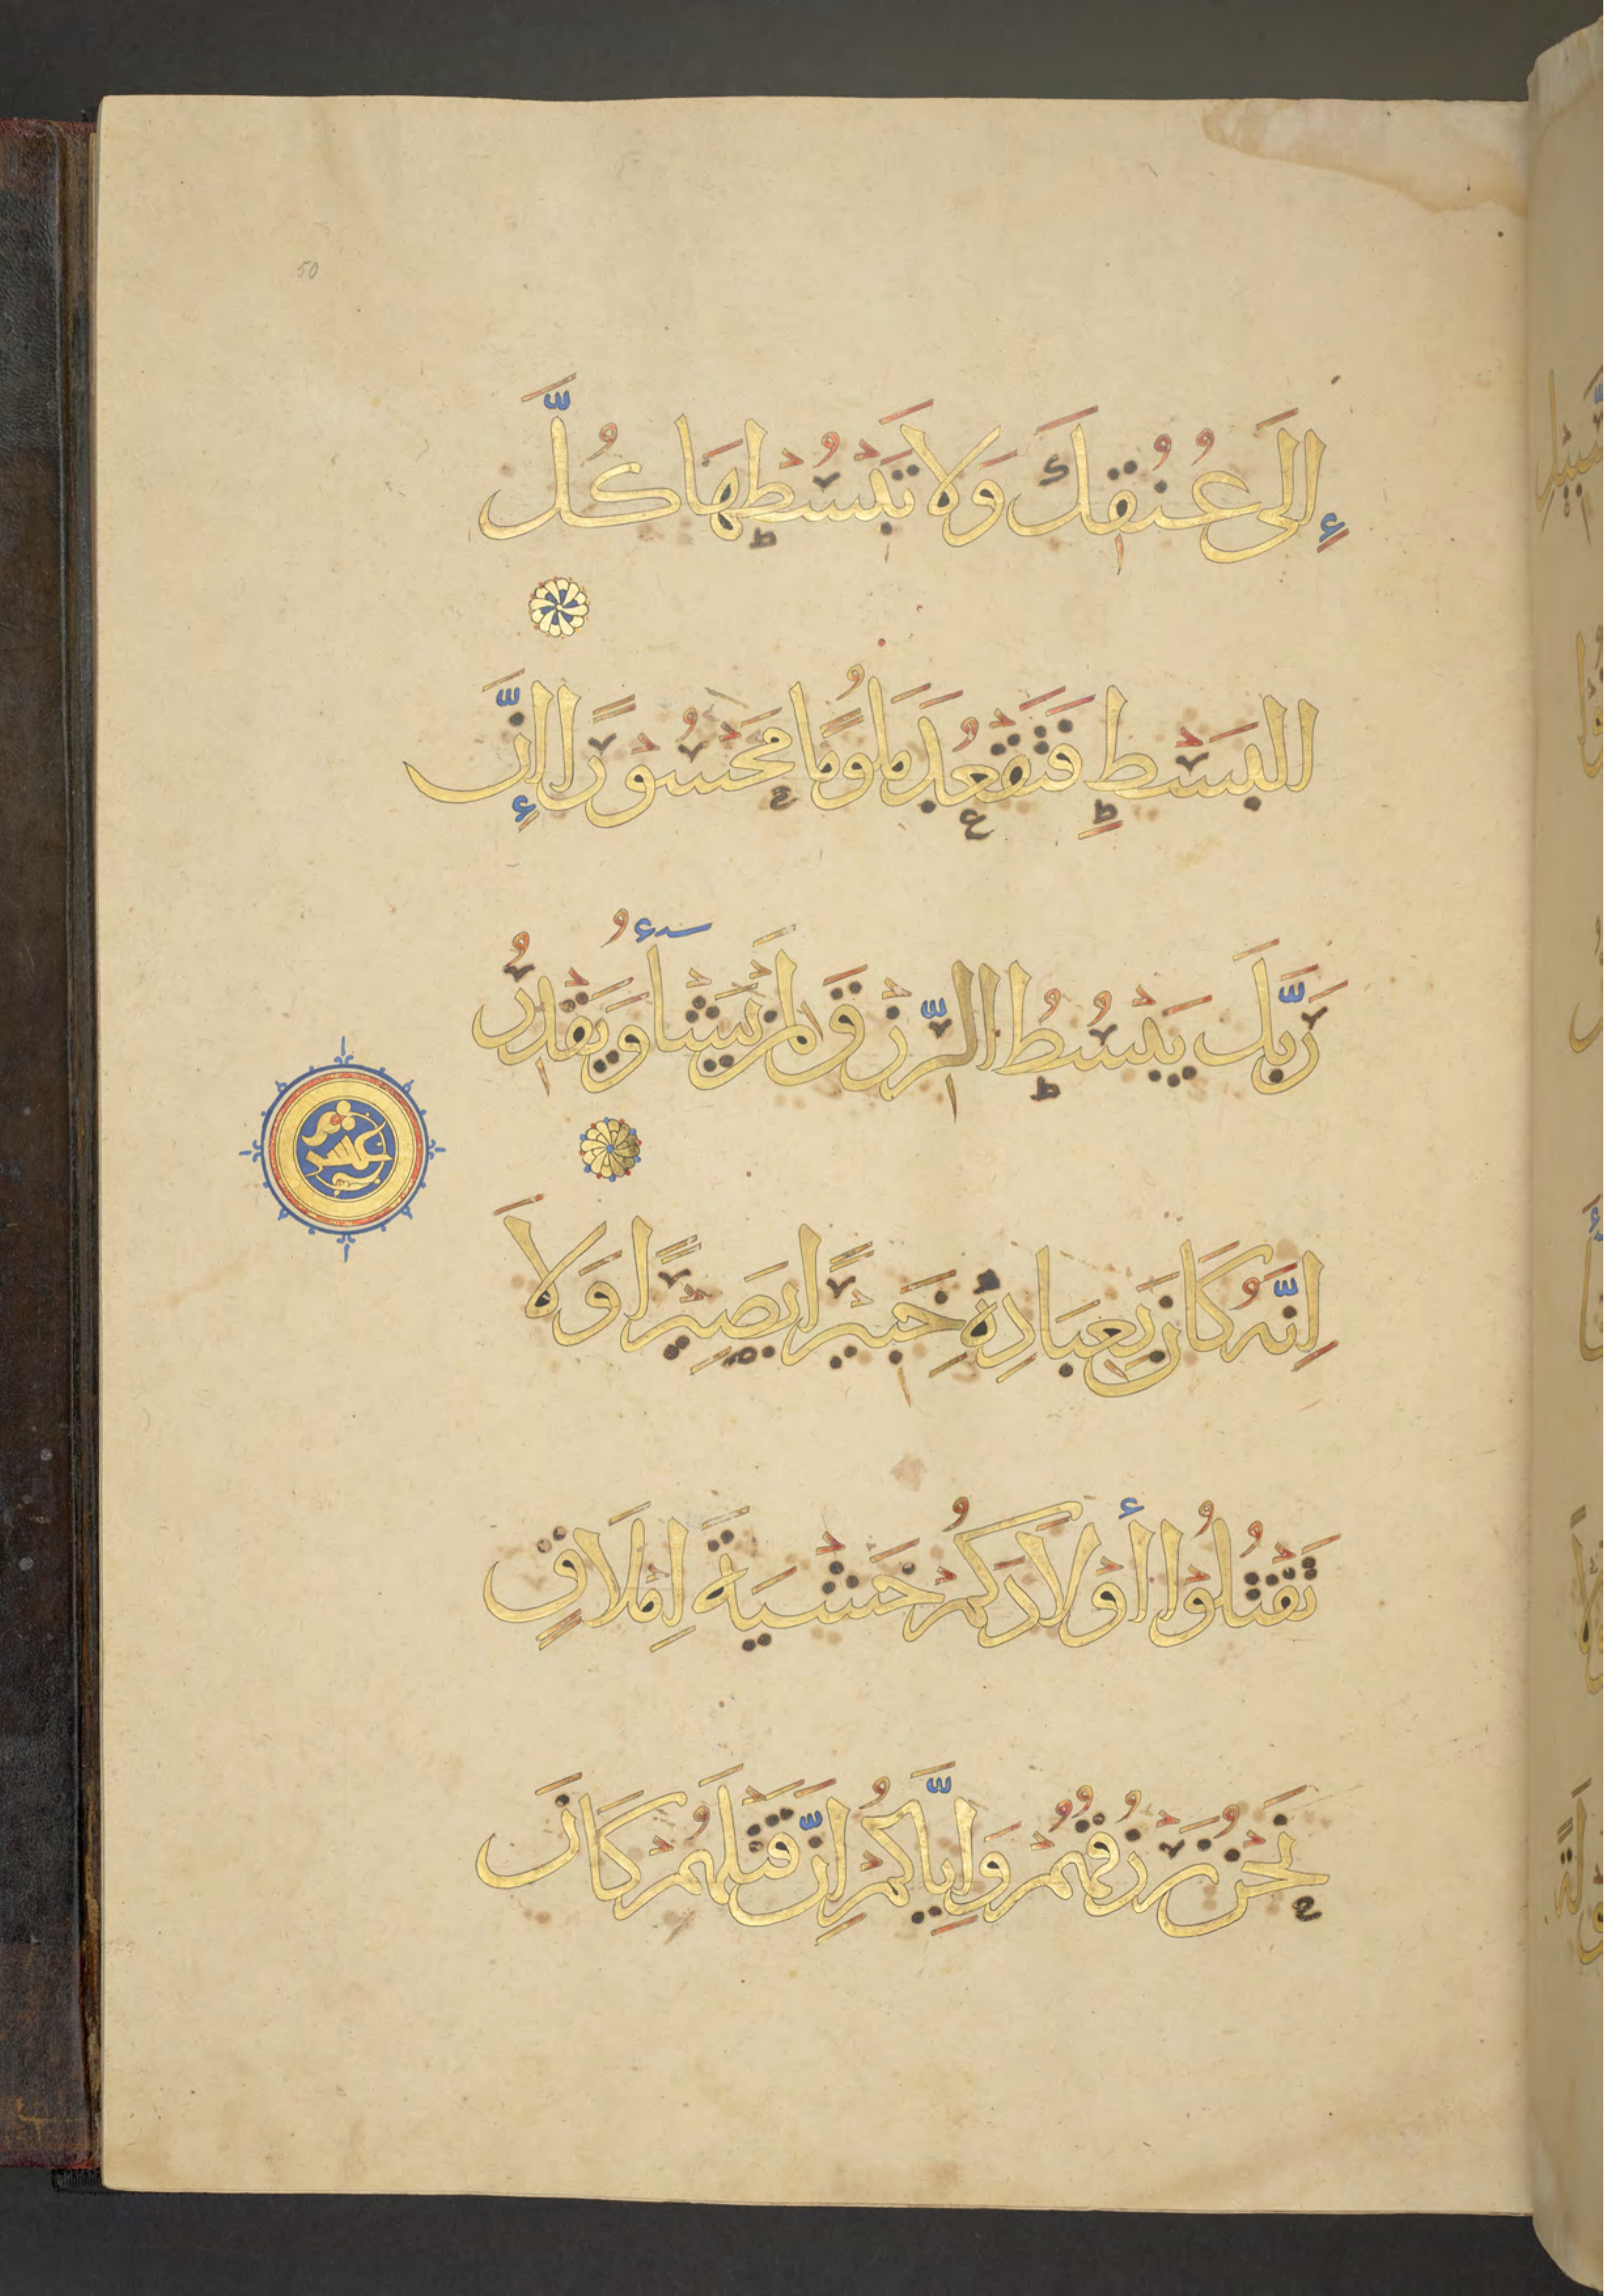 50
إِلَى عُنُقِكَ وَلَا تَبْسُطْهَا كُلَّ
الْبَسْطِ فَتَقْعُدَ مَلُومًا مَحْسُورًا إِنَّ
رَبَّكَ يَبْسُطُ الرِّزْقَ لِمَنْ يَشَآءُ وَيَقْدِرُ
اِنَّهُ كَانَ بِعِبَادِهِ خَبِيْرًا بَصِيْرًا وَلَا
تَقْتُلُوْا أَوْلَادَكُمْ خَشْيَةَ اِمْلَاقٍ
نَحْنُ نَرْزُقُهُمْ وَاِيَّاكُمْ اِنَّ قَتْلَهُمْ كَانَ